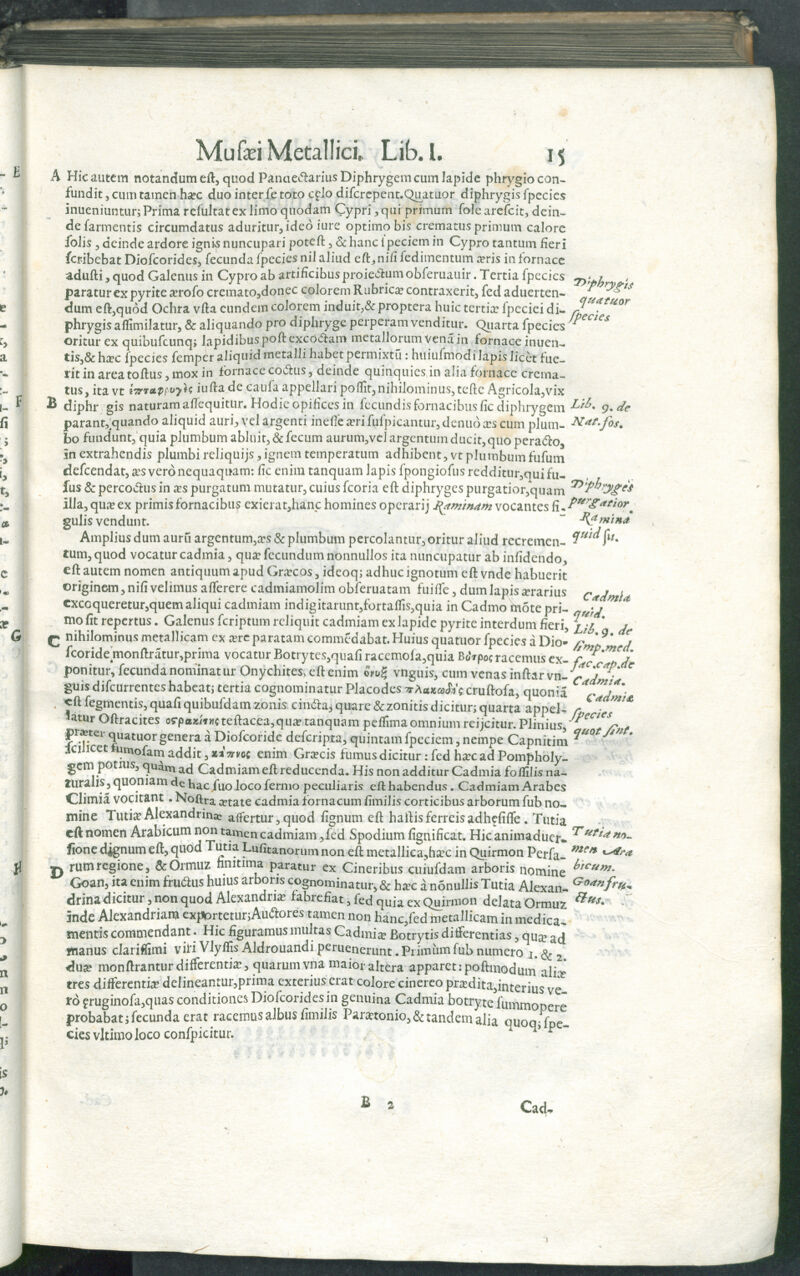 Musæi Metallici. Lib. I. 15
A Hic autem notandum est, quod Pandectarius Diphrygem cum lapide phrygio con-
fundit, cum tamen hæc duo inter se toto cęlo discrepent. Quatuor diphrygis species
inueniuntur; Prima resultat ex limo quodam Cypri, qui primum sole arescit, dein-
de sarmentis circumdatus aduritur, ideò iure optimo bis crematus primum calore
solis, deinde ardore ignis nuncupari potest, & hanc speciem in Cypro tantum fieri
scribebat Dioscorides, secunda species nil aliud est, nisi sedimentum æris in fornace
adusti, quod Galenus in Cypro ab artificibus proiectum obseruauit. Tertia species
paratur ex pyrite ærofo cremato, donec colorem Rubricæ contraxerit, sed aduerten-
dum est, quòd Ochra vsta eundem colorem induit, & proptera huic tertiæ speciei di-
phrygis assimilatur, & aliquando pro diphryge perperam venditur. Quarta species
oritur ex quibuscunq; lapidibus post excoctam metallorum venã in fornace inuen-
tis, & hæc species semper aliquid metalli habet permixtũ: huiusmodi lapis licèt fue-
rit in area tostus, mox in fornace coctus, deinde quinquies in alia fornace crema-
tus, ita vt iusta de causa appellari possit, nihilominus, teste Agricola, vix
B diphr gis naturam assequitur. Hodie opifices in secundis fornacibus sic diphrygem
parant, quando aliquid auri, vel argenti inesse æri suspicantur, denuò æs cum plum-
bo fundunt, quia plumbum abluit, & secum aurum, vel argentum ducit, quo peracto,
in extrahendis plumbi reliquijs, ignem temperatum adhibent, vt plumbum fusum
descendat, æs verò nequaquam: sic enim tanquam lapis spongiosus redditur, qui fu-
sus & percoctus in æs purgatum mutatur, cuius scoria est diphryges purgatior, quam
illa, quæ ex primis fornacibus exierat, hanc homines operarij Raminam vocantes fi-
gulis vendunt.
Amplius dum aurũ argentum, æs & plumbum percolantur, oritur aliud recremen-
tum, quod vocatur cadmia, quæ secundum nonnullos ita nuncupatur ab insidendo,
est autem nomen antiquum apud Græcos, ideoq; adhuc ignotum est vnde habuerit
originem, nisi velimus asserere cadmiamolim obseruatam fuisse, dum lapis ærarius
excoqueretur, quem aliqui cadmiam indigitarunt, fortassis, quia in Cadmo mõte pri-
mo sit repertus. Galenus scriptum reliquit cadmiam ex lapide pyrite interdum fieri,
C nihilominus metallicam ex ære paratam commẽdabat. Huius quatuor species à Dio-
scoride monstrãtur, prima vocatur Botrytes, quasi racemosa, quia Βότρος racemus ex-
ponitur, secunda nominatur Onychites, est enim ὄνυξ vnguis, cum venas instar vn-
guis discurrentes habeat; tertia cognominatur Placodes πλακώδης crustosa, quoniã
est segmentis, quasi quibusdam zonis cincta, quare & zonitis dicitur; quarta appel-
latur Ostracites οςρακίτης testacea, quæ tanquam pessima omnium reijcitur. Plinius,
præter quatuor genera à Dioscoride descripta, quintam speciem, nempe Capnitim
scilicet fumosam addit, κάπνος enim Græcis fumus dicitur: sed hæc ad Pompholy-
gem potius, quàm ad Cadmiam est reducenda. His non additur Cadmia fossilis na-
turalis, quoniam de hac suo loco sermo peculiaris est habendus. Cadmiam Arabes
Climiã vocitant. Nostra ætate cadmia fornacum similis corticibus arborum sub no-
mine Tutiæ Alexandrinæ affertur, quod signum est hastis ferreis adhęsisse. Tutia
est nomen Arabicum non tamen cadmiam, sed Spodium significat. Hic animaduer-
sione dignum est, quod Tutia Lusitanorum non est metallica, hæc in Quirmon Persa-
D rum regione, & Ormuz finitima paratur ex Cineribus cuiusdam arboris nomine
Goan, ita enim fructus huius arboris cognominatur, & hæc à nõnullis Tutia Alexan-
drina dicitur, non quod Alexandriæ fabrefiat, sed quia ex Quirmon delata Ormuz
inde Alexandriam exportetur; Auctores tamen non hanc, sed metallicam in medica-
mentis commendant. Hic figuramus multas Cadmiæ Botrytis differentias, quæ ad
manus clarissimi viri Vlyssis Aldrouandi peruenerunt. Primùm sub numero 1. & 2.
duæ monstrantur differentiæ, quarum vna maior altera apparet: postmodum aliæ
tres differentiæ delineantur, prima exterius erat colore cinereo prædita, interius ve-
rò ęruginosa, quas conditiones Dioscorides in genuina Cadmia botryte summopere
probabat; secunda erat racemus albus similis Parætonio, & tandem alia quoq; spe-
cies vltimo loco conspicitur.
Diphrygis
quatuor
species
Lib. 9. de
Nat. fos.
Diphryges
purgatior
Ramina
quid sit.
Cadmia
quid.
Lib. 9. de
simp. med.
fac. cap. de
Cadmia.
Cadmiæ
species
quot sint.
Tutia no-
men Ara
bicum.
Goan fru-
ctus.
B 2 Cad-